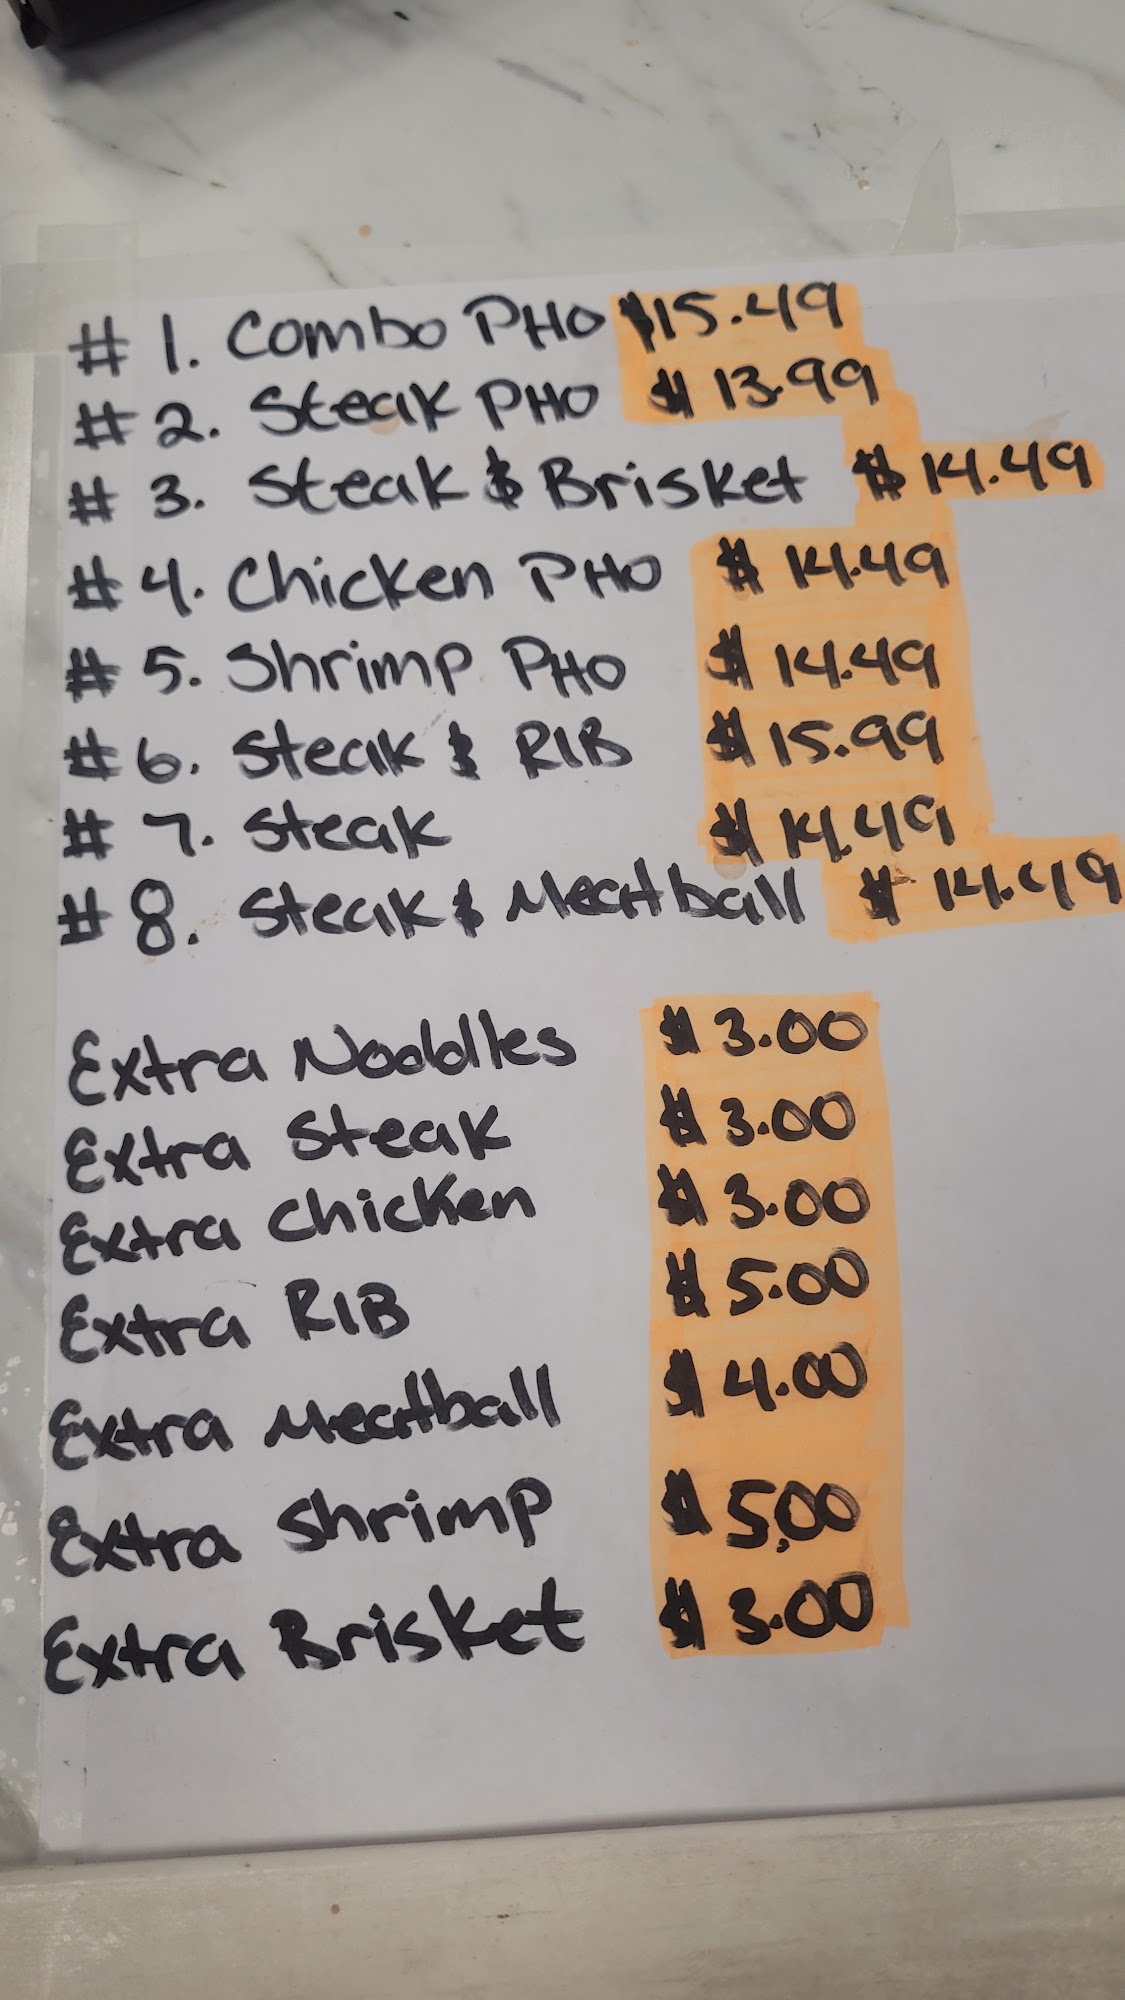 # 1. Combo PHO $15.49
# 2. Steak PHO $13.99
# 3. Steak & Brisket $14.49
# 4. Chicken PHO $14.49
# 5. Shrimp PHO $14.49
# 6. Steak & RIB $15.99
# 7. Steak $14.49
# 8. Steak & Meatball $14.49
Extra Nooddles $3.00
Extra Steak $3.00
Extra Chicken $3.00
Extra RIB $5.00
Extra Meatball $4.00
Extra Shrimp $5,00
Extra Brisket $3.00